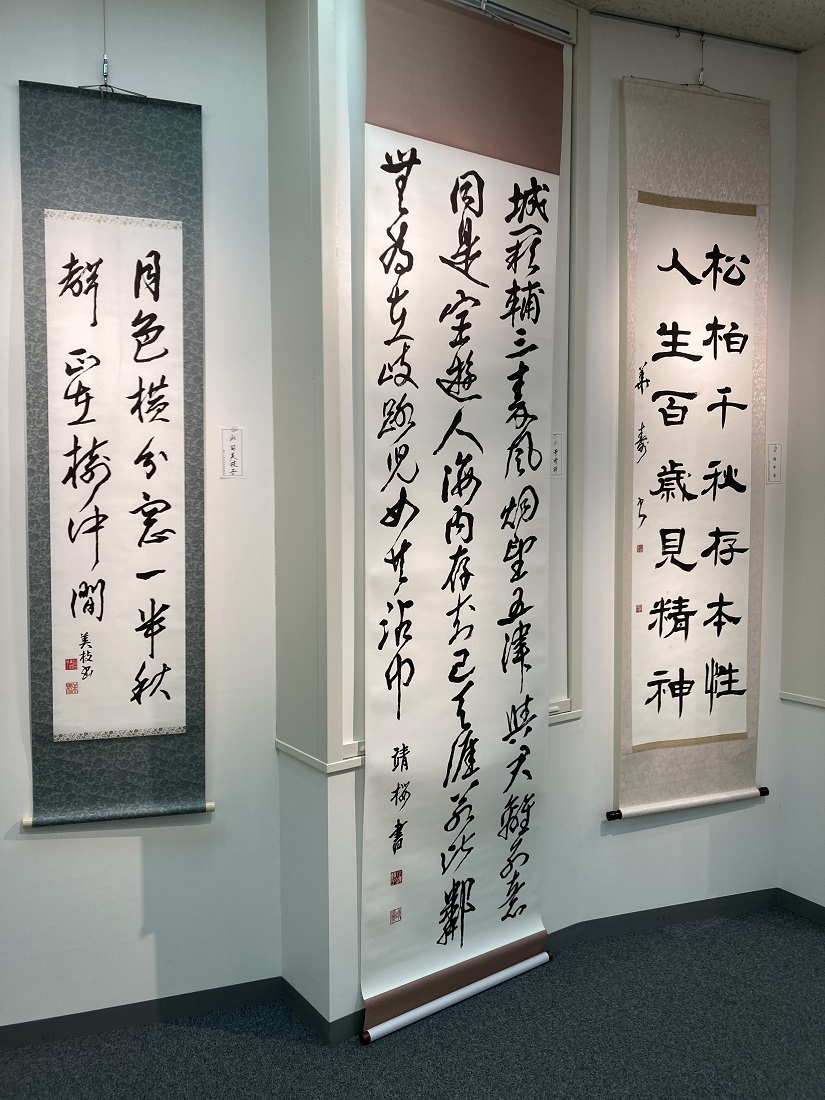 松柏千秋存本性
人生百歳見精神
華寿書
城闕輔三秦風烟望五津與君離別意
同是宦遊人海内存知己天涯若比鄰
無為在歧路児女共沾巾
靖桜書
月色横分窓一半秋
聲正在樹中間
美枝書